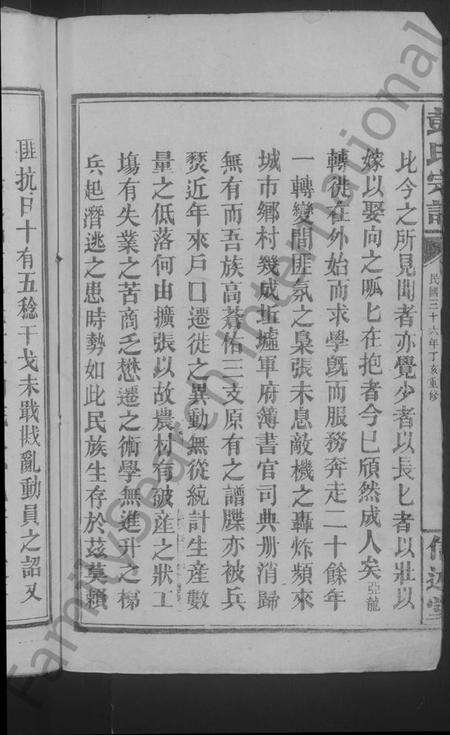 彭氏宗譜
民國三十六年丁亥重修
比今之所見聞者亦覺少者以長匕者以壯以
嫁以娶向之呱匕在抱者今已頎然成人矣亞龍
轉徙在外始而求學旣而服務奔走二十餘年
一轉變間匪氛之梟張未息敵機之轟炸頻來
城市鄉村幾成坵墟軍府簿書官司典册消歸
無有而吾族高蒼佑三支原有之譜牒亦被兵
燹近年來戶口遷徙之異動無從統計生産數
量之低落何由擴張以故農村有破産之狀工
塲有失業之苦商乏懋遷之術學無進升之梯
兵起潛逃之患時勢如此民族生存於茲莫賴
匪抗日十有五稔干戈未戢戡亂動員之詔又
FamilySearch International